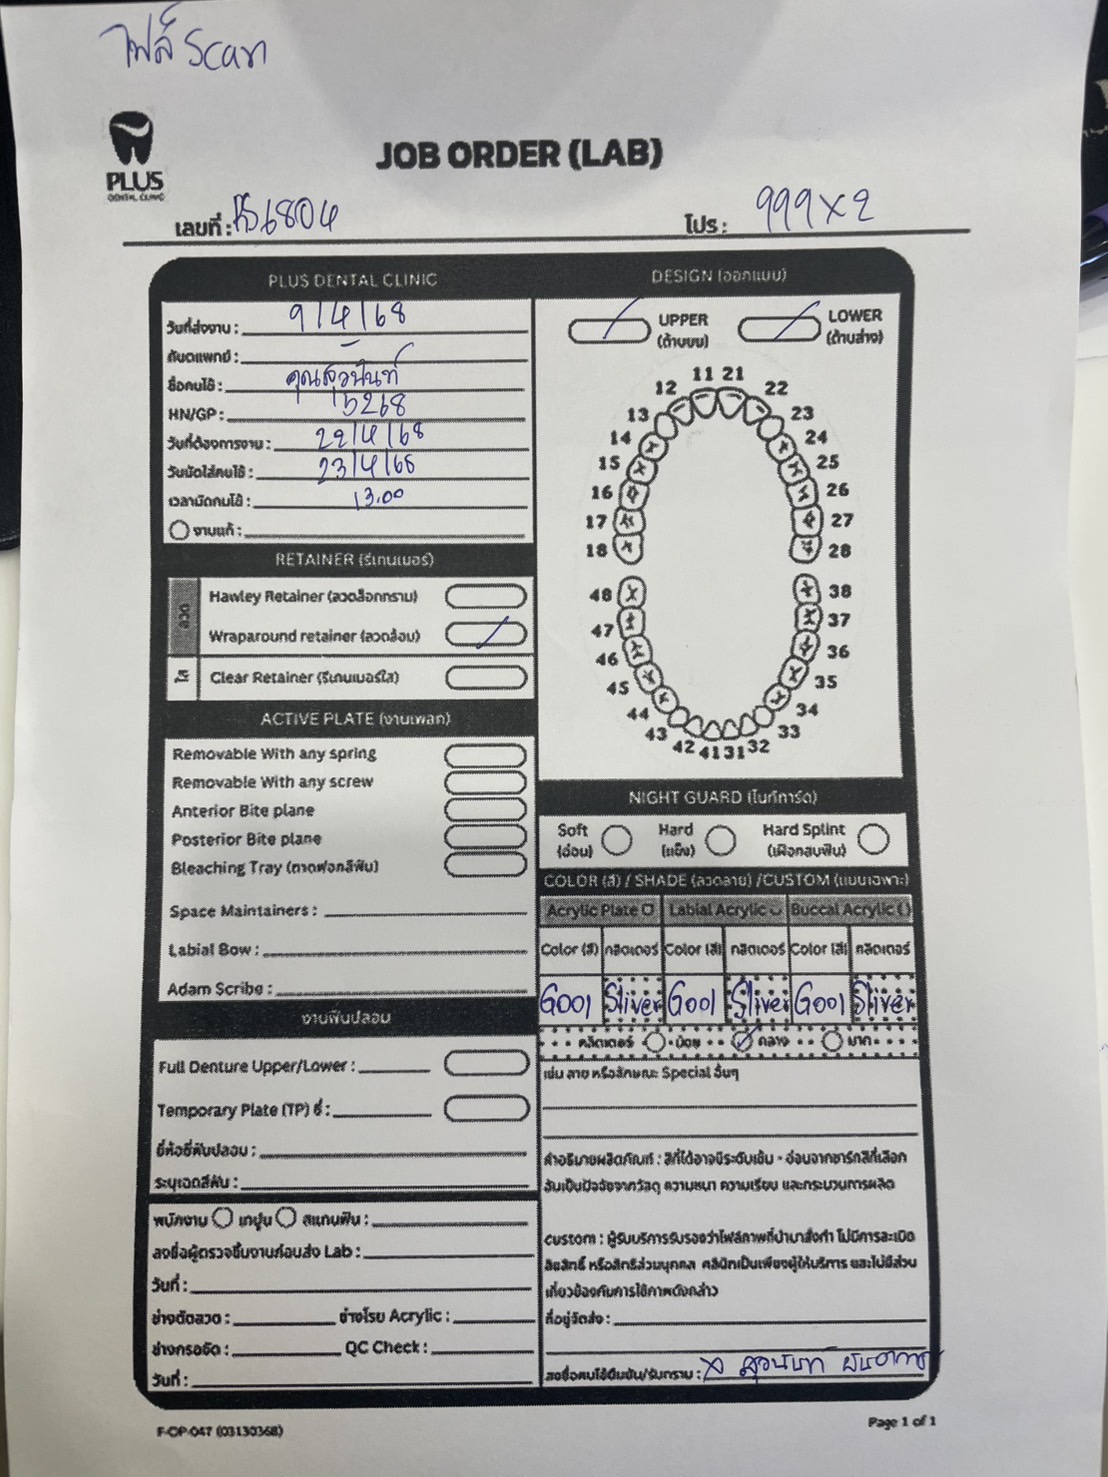 ไฟล์ Scan
PLUS
DENTAL CLINIC
JOB ORDER (LAB)
เลขที่ : 6804
โปร : 999x2
PLUS DENTAL CLINIC
วันที่ส่งงาน : 9/4/68
ทันตแพทย์ : -
ชื่อคนไข้ : คุณสุวนันท์
HN/GP : 15268
วันที่ต้องการงาน : 22/4/68
วันนัดใส่คนไข้ : 23/4/68
เวลานัดคนไข้ : 13.00
งานแก้ :
RETAINER (รีเทนเนอร์)
ลวด
Hawley Retainer (ลวดล็อกกราม)
Wraparound retainer (ลวดล้อม)
ใส
Clear Retainer (รีเทนเนอร์ใส)
ACTIVE PLATE (งานเพลท)
Removable With any spring
Removable With any screw
Anterior Bite plane
Posterior Bite plane
Bleaching Tray (ถาดฟอกสีฟัน)
Space Maintainers :
Labial Bow :
Adam Scribe :
งานฟันปลอม
Full Denture Upper/Lower :
Temporary Plate (TP) ซี่ :
ยี่ห้อซี่ฟันปลอม :
ระบุเฉดสีฟัน :
พนักงาน เทปูน สแกนฟัน :
ลงชื่อผู้ตรวจชิ้นงานก่อนส่ง Lab :
วันที่ :
ช่างดัดลวด : ช่างโรย Acrylic :
ช่างกรอขัด : QC Check :
วันที่ :
DESIGN (ออกแบบ)
UPPER
(ด้านบน)
LOWER
(ด้านล่าง)
11 21
12 22
13 23
14 24
15 25
16 26
17 27
18 28
48 38
47 37
46 36
45 35
44 34
43 33
42 41 31 32
NIGHT GUARD (ไนท์การ์ด)
Soft
(อ่อน)
Hard
(แข็ง)
Hard Splint
(เฝือกสบฟัน)
COLOR (สี) / SHADE (ลวดลาย) /CUSTOM (แบบเฉพาะ)
Acrylic Plate Labial Acrylic Buccal Acrylic ( )
Color (สี) กลิตเตอร์ Color (สี) กลิตเตอร์ Color (สี) กลิตเตอร์
G001 Sliver G001 Sliver G001 Sliver
กลิตเตอร์ น้อย กลาง มาก
เช่น ลาย หรือลักษณะ Special อื่นๆ
คำอธิบายผลิตภัณฑ์ : สีที่ได้อาจมีระดับเข้ม - อ่อนจากชาร์ทสีที่เลือก
อันเป็นปัจจัยจากวัสดุ ความหนา ความเรียบ และกระบวนการผลิต
custom : ผู้รับบริการรับรองว่าไฟล์ภาพที่นำมาสั่งทำ ไม่มีการละเมิด
ลิขสิทธิ์ หรือสิทธิส่วนบุคคล คลินิกเป็นเพียงผู้ให้บริการ และไม่มีส่วน
เกี่ยวข้องกับการใช้ภาพดังกล่าว
ที่อยู่จัดส่ง :
ลงชื่อคนไข้ยืนยัน/รับทราบ : x สุวนันท์
F-OP-047 (03130368)
Page 1 of 1